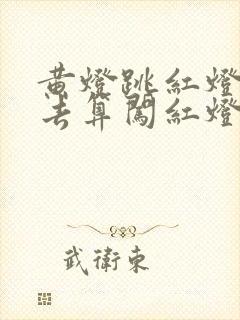 黄燈跳紅燈
去算闖紅燈
武衛東